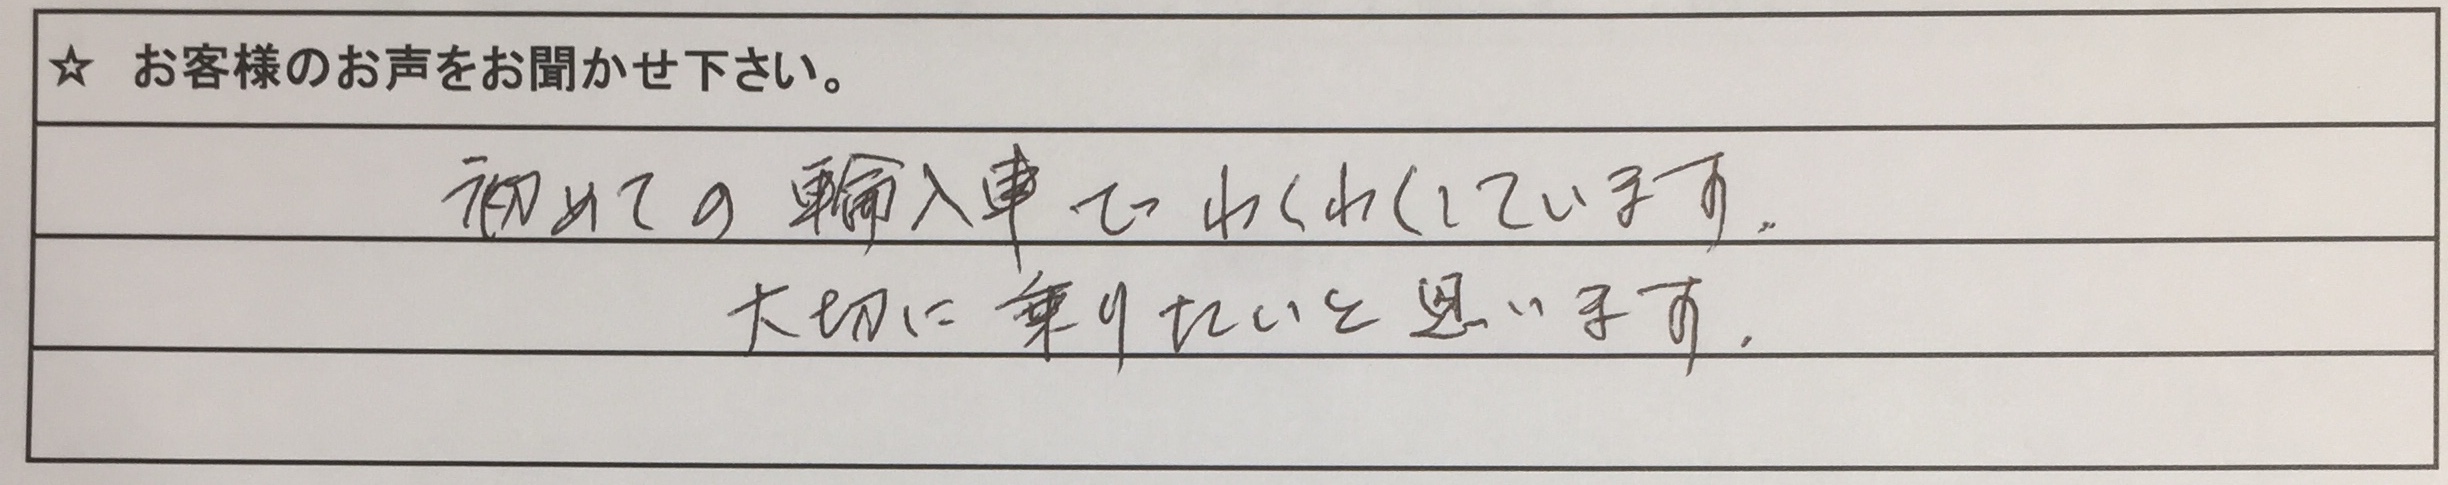 ☆ お客様のお声をお聞かせ下さい。
初めての輸入車でわくわくしています.
大切に乗りたいと思います.